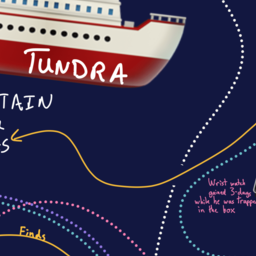 TUNDRA
TAIN
Wrist watch
gained 3-days
while he was trapped
in the box
Finds